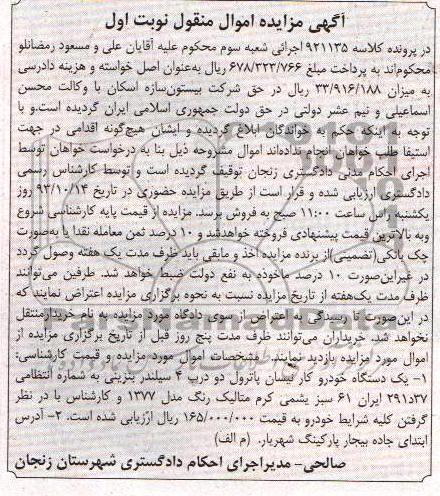 آگهی مزایده اموال منقول نوبت اول
در پرونده کلاسه ۹۲۱۱۳۵ اجرائی شعبه سوم محکوم علیه آقایان علی و مسعود رمضانلو
محکوم‌اند به پرداخت مبلغ ۶۷۸/۳۲۳/۷۶۶ ریال به‌عنوان اصل خواسته و هزینه دادرسی
به میزان ۳۳/۹۱۶/۱۸۸ ریال در حق شرکت بیستون‌سازه اسکان با وکالت محسن
اسماعیلی و نیم عشر دولتی در حق دولت جمهوری اسلامی ایران گردیده است.و با
توجه به اینکه حکم به خواندگان ابلاغ گردیده و ایشان هیچ‌گونه اقدامی در جهت
استیفا طلب خواهان انجام نداده‌اند اموال مشروحه ذیل بنا به درخواست خواهان توسط
اجرای احکام مدنی دادگستری زنجان توقیف گردیده است و توسط کارشناس رسمی
دادگستری ارزیابی شده و قرار است از طریق مزایده حضوری در تاریخ ۹۳/۱۰/۱۴ روز
یکشنبه راس ساعت ۱۱:۰۰ صبح به فروش برسد. مزایده از قیمت پایه کارشناسی شروع
وبه بالاترین قیمت پیشنهادی فروخته خواهدشد و ۱۰ درصد ثمن معامله نقدا یا به‌صورت
چک بانکی(تضمینی)از برنده مزایده اخذ و مابقی باید ظرف مدت یک هفته وصول گردد
در غیراین‌صورت ۱۰ درصد ماخوذه به نفع دولت ضبط خواهد شد. طرفین می‌توانند
ظرف مدت یک‌هفته از تاریخ مزایده نسبت به نحوه برگزاری مزایده اعتراض نمایند که
در این‌صورت تا رسیدگی به اعتراض از سوی دادگاه مورد مزایده به نام خریدارمنتقل
نخواهد شد. خریداران می‌توانند ظرف مدت پنج روز قبل از تاریخ برگزاری مزایده از
اموال مورد مزایده بازدید نمایند. مشخصات اموال مورد مزایده و قیمت کارشناسی:
۱- یک دستگاه خودرو کار نیسان پاترول دو درب ۴ سیلندر بنزینی به شماره انتظامی
۳۷د۲۹۱ ایران ۶۱ سبز یشمی کرم متالیک رنگ مدل ۱۳۷۷ و کارشناس با در نظر
گرفتن کلیه شرایط خودرو به قیمت ۱۶۵/۰۰۰/۰۰۰ ریال ارزیابی شده است. ۲- آدرس
ابتدای جاده بیجار پارکینگ شهریار. (م الف)
صالحی- مدیراجرای احکام دادگستری شهرستان زنجان